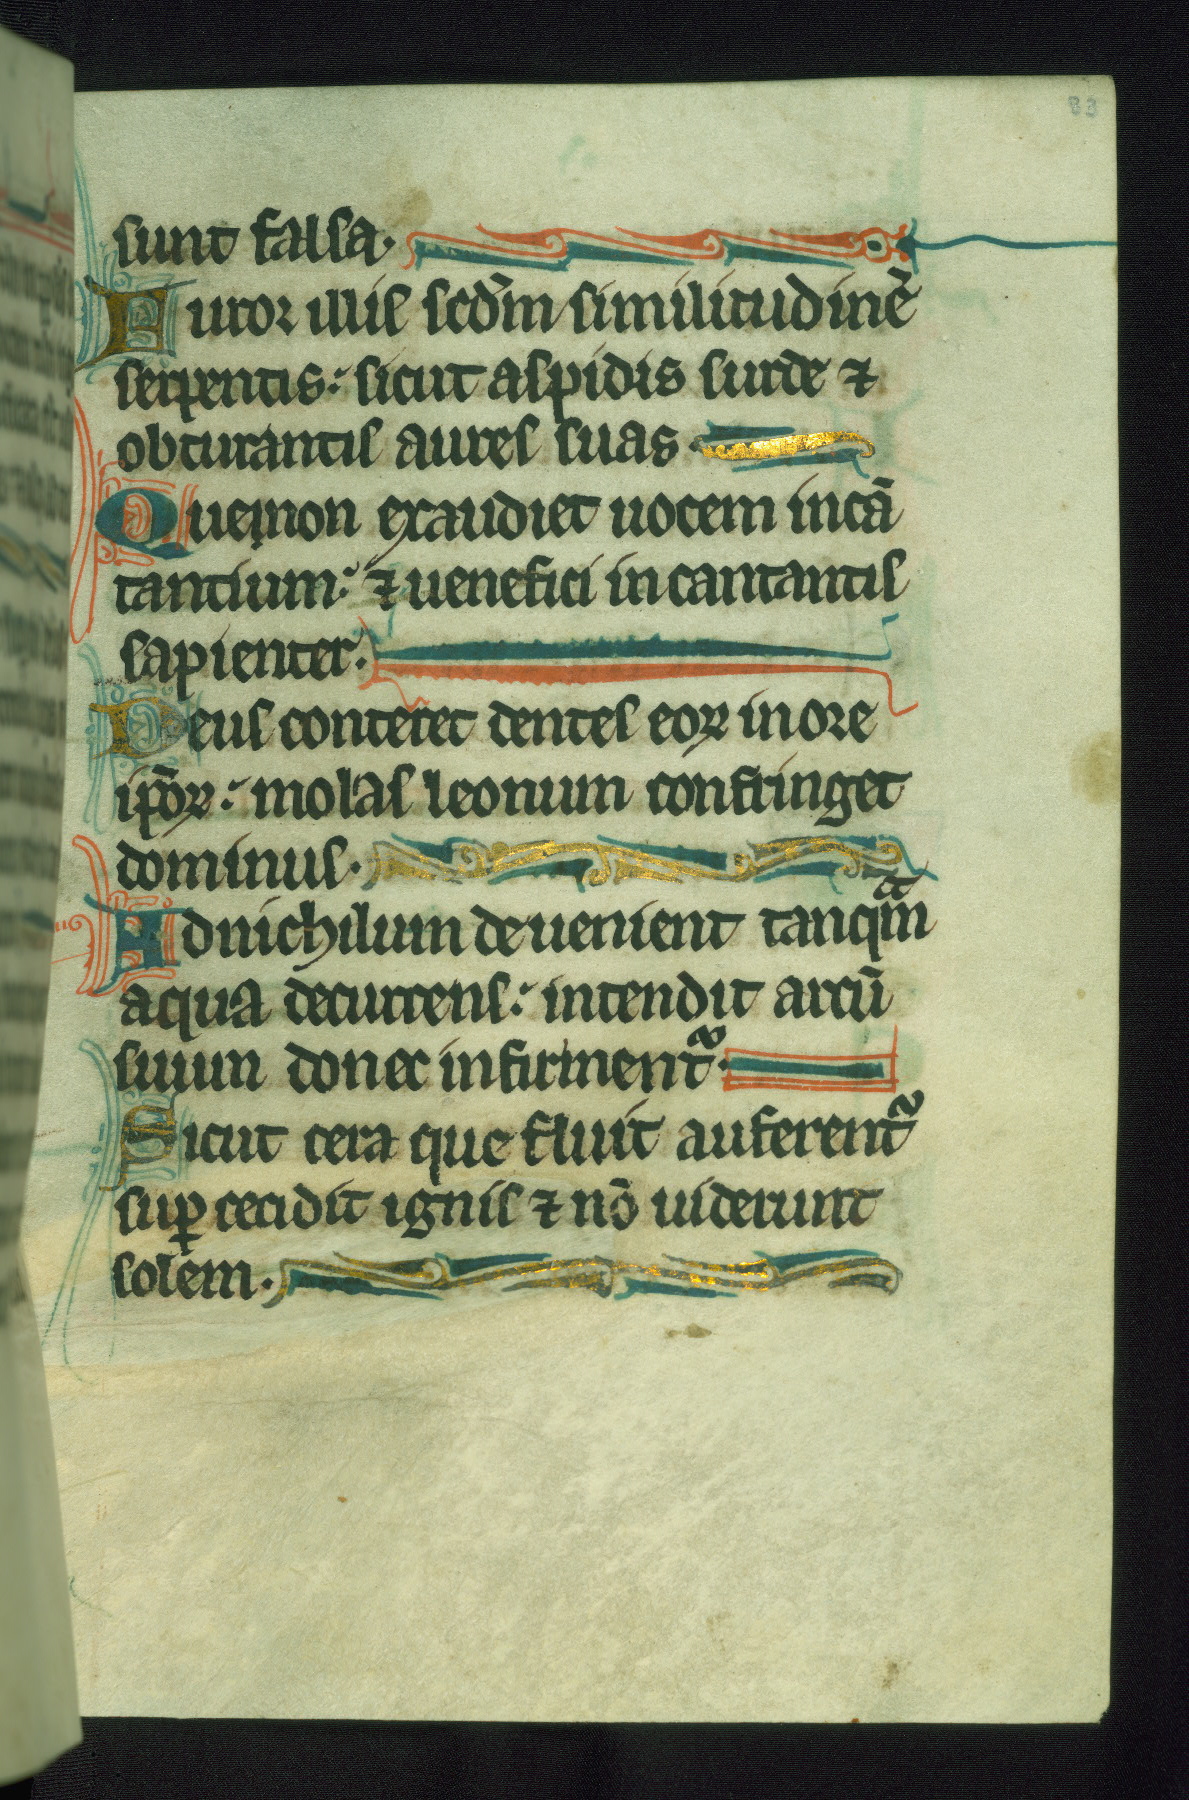 83
sunt falsa.
Furor illis scd̄m similitudinē
serpentis: sicut aspidis surde ⁊
obturantis aures suas.
Quemnon exaudiet uocem incā
tantium: ⁊ uenefici incantantis
sapienter.
Deus conteret dentes eoꝝ in ore
ip̄oꝝ: molas leonum confringet
dominus.
Ad nichilum deuenient tanqᵃm
aqua decurrens: intendit arcū
suum donec infirmentᷣ.
Sicut cera que fluit auferentᷣ
suꝑ cecidit ignis ⁊ nō uiderunt
solem.